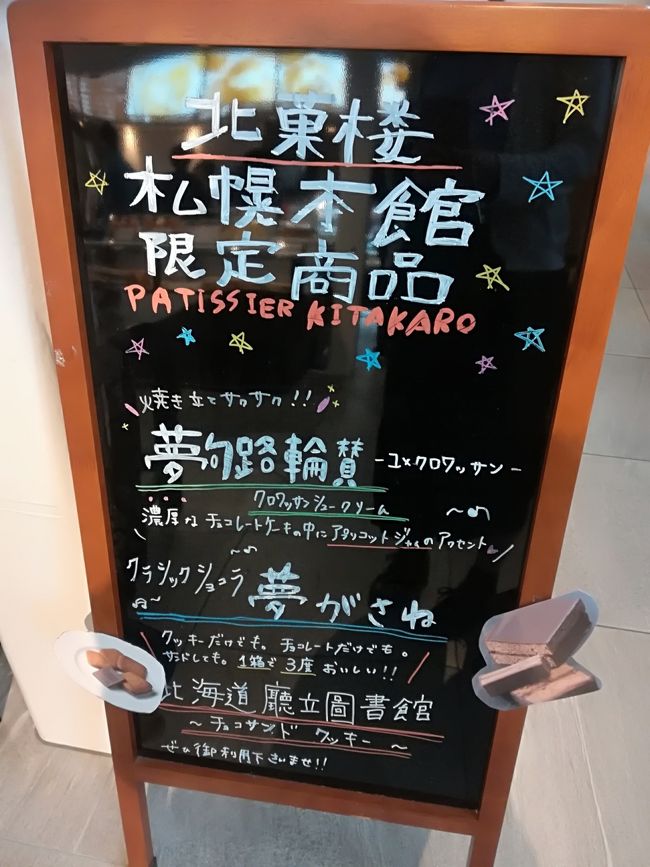 北菓楼
札幌本館
限定商品
PATISSIER KITAKARO
焼き立てサクサク!!
夢句路輪賛 -ユメクロワッサン-
クロワッサンシュークリーム
濃厚なチョコレートケーキの中にアプリコットジャムのアクセント
クラシックショコラ 夢がさね
クッキーだけでも。チョコレートだけでも。
サンドしても。1箱で3度おいしい!!
北海道廳立圖書館
~チョコサンドクッキー~
ぜひ御利用下さいませ!!